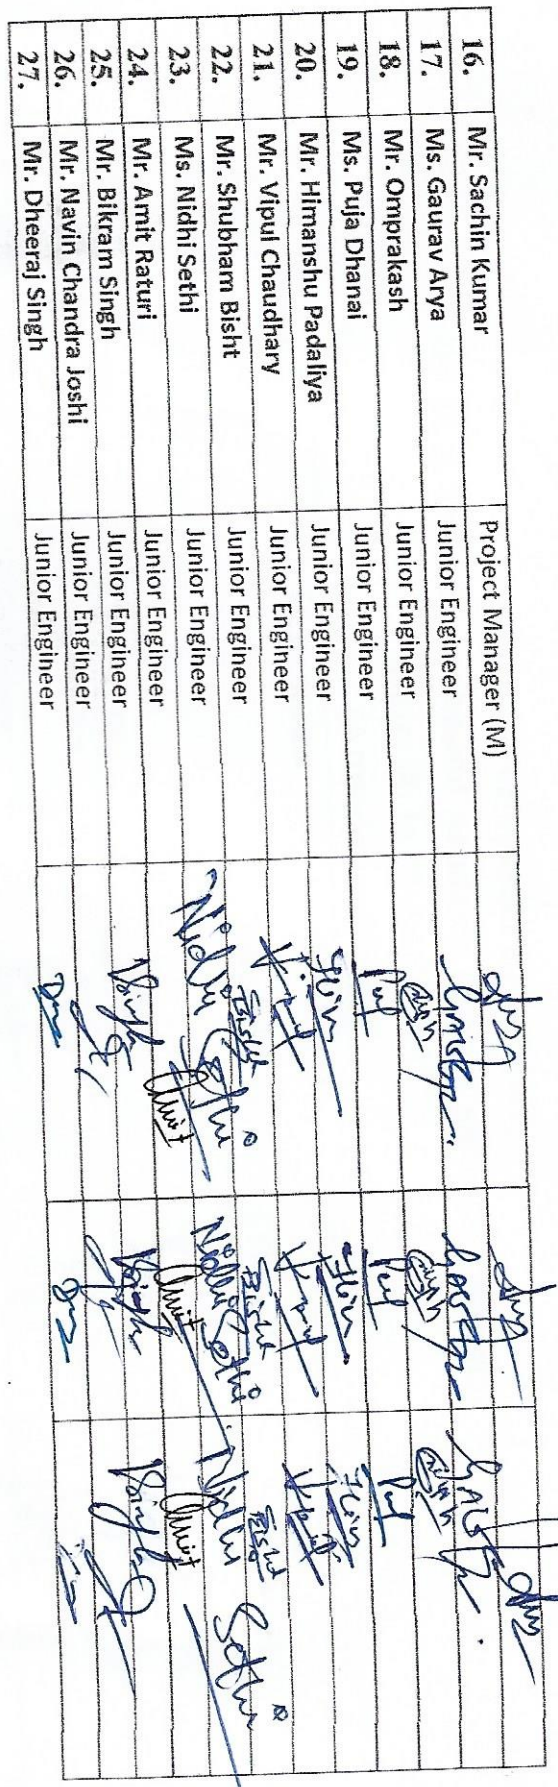 16. Mr. Sachin Kumar Project Manager (M)
17. Ms. Gaurav Arya Junior Engineer
18. Mr. Omprakash Junior Engineer
19. Ms. Puja Dhanai Junior Engineer
20. Mr. Himanshu Padaliya Junior Engineer Him Him Him
21. Mr. Vipul Chaudhary Junior Engineer
22. Mr. Shubham Bisht Junior Engineer Bisht Bisht Bisht
23. Ms. Nidhi Sethi Junior Engineer Nidhi Sethi Nidhi Sethi Nidhi Sethi
24. Mr. Amit Raturi Junior Engineer Amit Amit Amit
25. Mr. Bikram Singh Junior Engineer BSingh BSingh BSingh
26. Mr. Navin Chandra Joshi Junior Engineer
27. Mr. Dheeraj Singh Junior Engineer